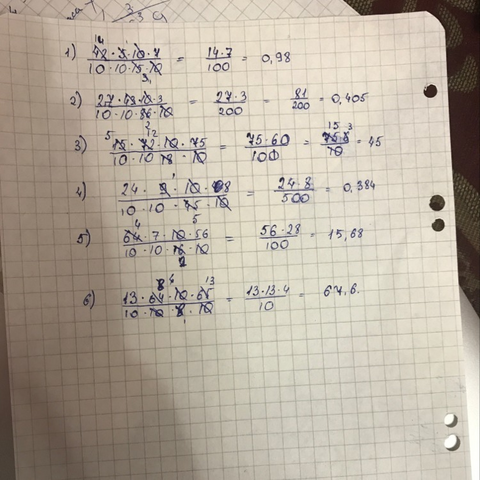 1) 42·3·10·7 / 10·10·15·10 = 14·7 / 100 = 0,98
2) 27·43·10·3 / 10·10·86·10 = 27·3 / 200 = 81 / 200 = 0,405
3) 15·72·10·75 / 10·10·18·10 = 75·60 / 100 = = 45
4) 24·9·10·8 / 10·10·45·10 = 24·8 / 500 = 0,384
5) 64·7·10·56 / 10·10·16·10 = 56·28 / 100 = 15,68
6) 13·64·10·65 / 10·10·8·10 = 13·13·4 / 10 = 67,6.